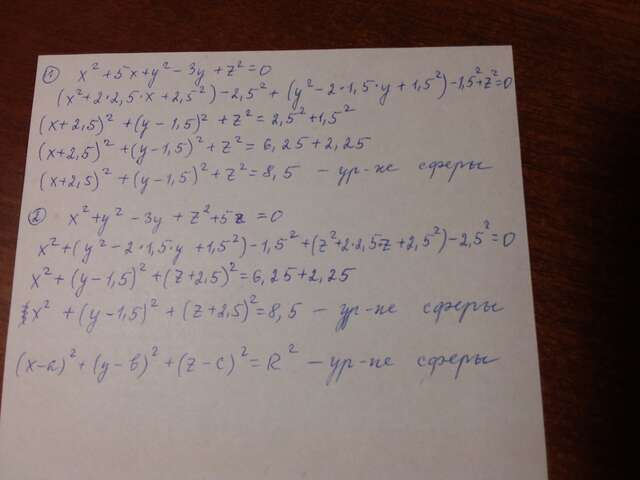 ① x² + 5x + y² - 3y + z² = 0
(x² + 2·2,5·x + 2,5²) - 2,5² + (y² - 2·1,5·y + 1,5²) - 1,5² + z² = 0
(x+2,5)² + (y-1,5)² + z² = 2,5² + 1,5²
(x+2,5)² + (y-1,5)² + z² = 6,25 + 2,25
(x+2,5)² + (y-1,5)² + z² = 8,5 - ур-не сферы
② x² + y² - 3y + z² + 5z = 0
x² + (y² - 2·1,5·y + 1,5²) - 1,5² + (z² + 2·2,5z + 2,5²) - 2,5² = 0
x² + (y-1,5)² + (z+2,5)² = 6,25 + 2,25
x² + (y-1,5)² + (z+2,5)² = 8,5 - ур-не сферы
(x-a)² + (y-b)² + (z-c)² = R² - ур-не сферы